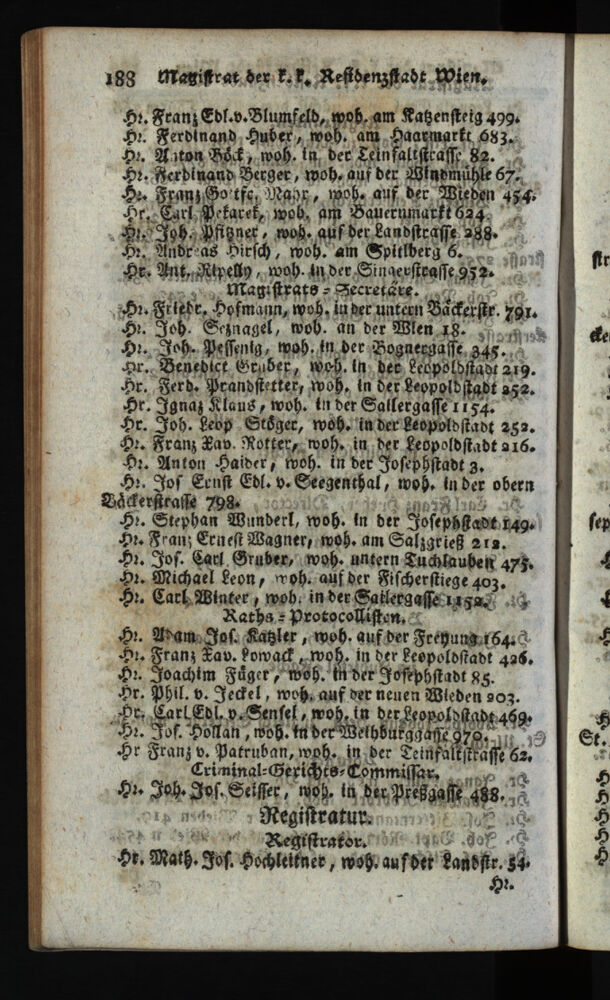 188 Magistrat der k. k. Residenzstadt Wien.
Hr. Franz Edl. v. Blumfeld, woh. am Katzensteig 499.
Hr. Ferdinand Huber, woh. am Haarmarkt 683.
Hr. Anton Böck, woh. in der Teinfaltstrasse 82.
Hr. Ferdinand Berger, woh. auf der Windmühle 67.
Hr. Franz Gottfr. Mahr, woh. auf der Wieden 454.
Hr. Carl Pekarek, woh. am Bauernmarkt 624.
Hr. Joh. Pfitzner, woh. auf der Landstrasse 288.
Hr. Andreas Hirsch, woh. am Spitlberg 6.
Hr. Ant. Ripelly, woh. in der Singerstrasse 952.
Magistrats-Secretäre.
Hr. Friedr. Hofmann, woh. in der untern Bäckerstr. 791.
Hr. Joh. Seznagel, woh. an der Wien 18.
Hr. Joh. Pessenig, woh. in der Bognergasse 345.
Hr. Benedict Gruber, woh. in der Leopoldstadt 219.
Hr. Ferd. Prandstetter, woh. in der Leopoldstadt 252.
Hr. Ignaz Klaus, woh. in der Sailergasse 1154.
Hr. Joh. Leop Stöger, woh. in der Leopoldstadt 252.
Hr. Franz Xav. Rotter, woh. in der Leopoldstadt 216.
Hr. Anton Haider, woh. in der Josephstadt 3.
Hr. Jos Ernst Edl. v. Seegenthal, woh. in der obern
Bäckerstrasse 798.
Hr. Stephan Wunderl, woh. in der Josephstadt 149.
Hr. Franz Ernest Wagner, woh. am Salzgrieß 212.
Hr. Jos. Carl Gruber, woh. untern Tuchlauben 475.
Hr. Michael Leon, woh. auf der Fischerstiege 403.
Hr. Carl Winter, woh. in der Sailergasse 1152.
Raths-Protocollisten.
Hr. Adam Jos. Katzler, woh. auf der Freyung 164.
Hr. Franz Xav. Lowack, woh. in der Leopoldstadt 426.
Hr. Joachim Füger, woh. in der Josephstadt 85.
Hr. Phil. v. Jeckel, woh. auf der neuen Wieden 203.
Hr. Carl Edl. v. Sensel, woh. in der Leopoldstadt 469.
Hr. Jos. Hollan, woh. in der Weihburggasse 970.
Hr Franz v. Patruban, woh. in der Teinfaltstrasse 62.
Criminal-Gerichts-Commissar.
Hr. Joh. Jos. Seisser, woh. in der Preßgasse 488.
Registratur.
Registrator.
Hr. Math. Jos. Hochleitner, woh. auf der Landstr. 54.
Hr.